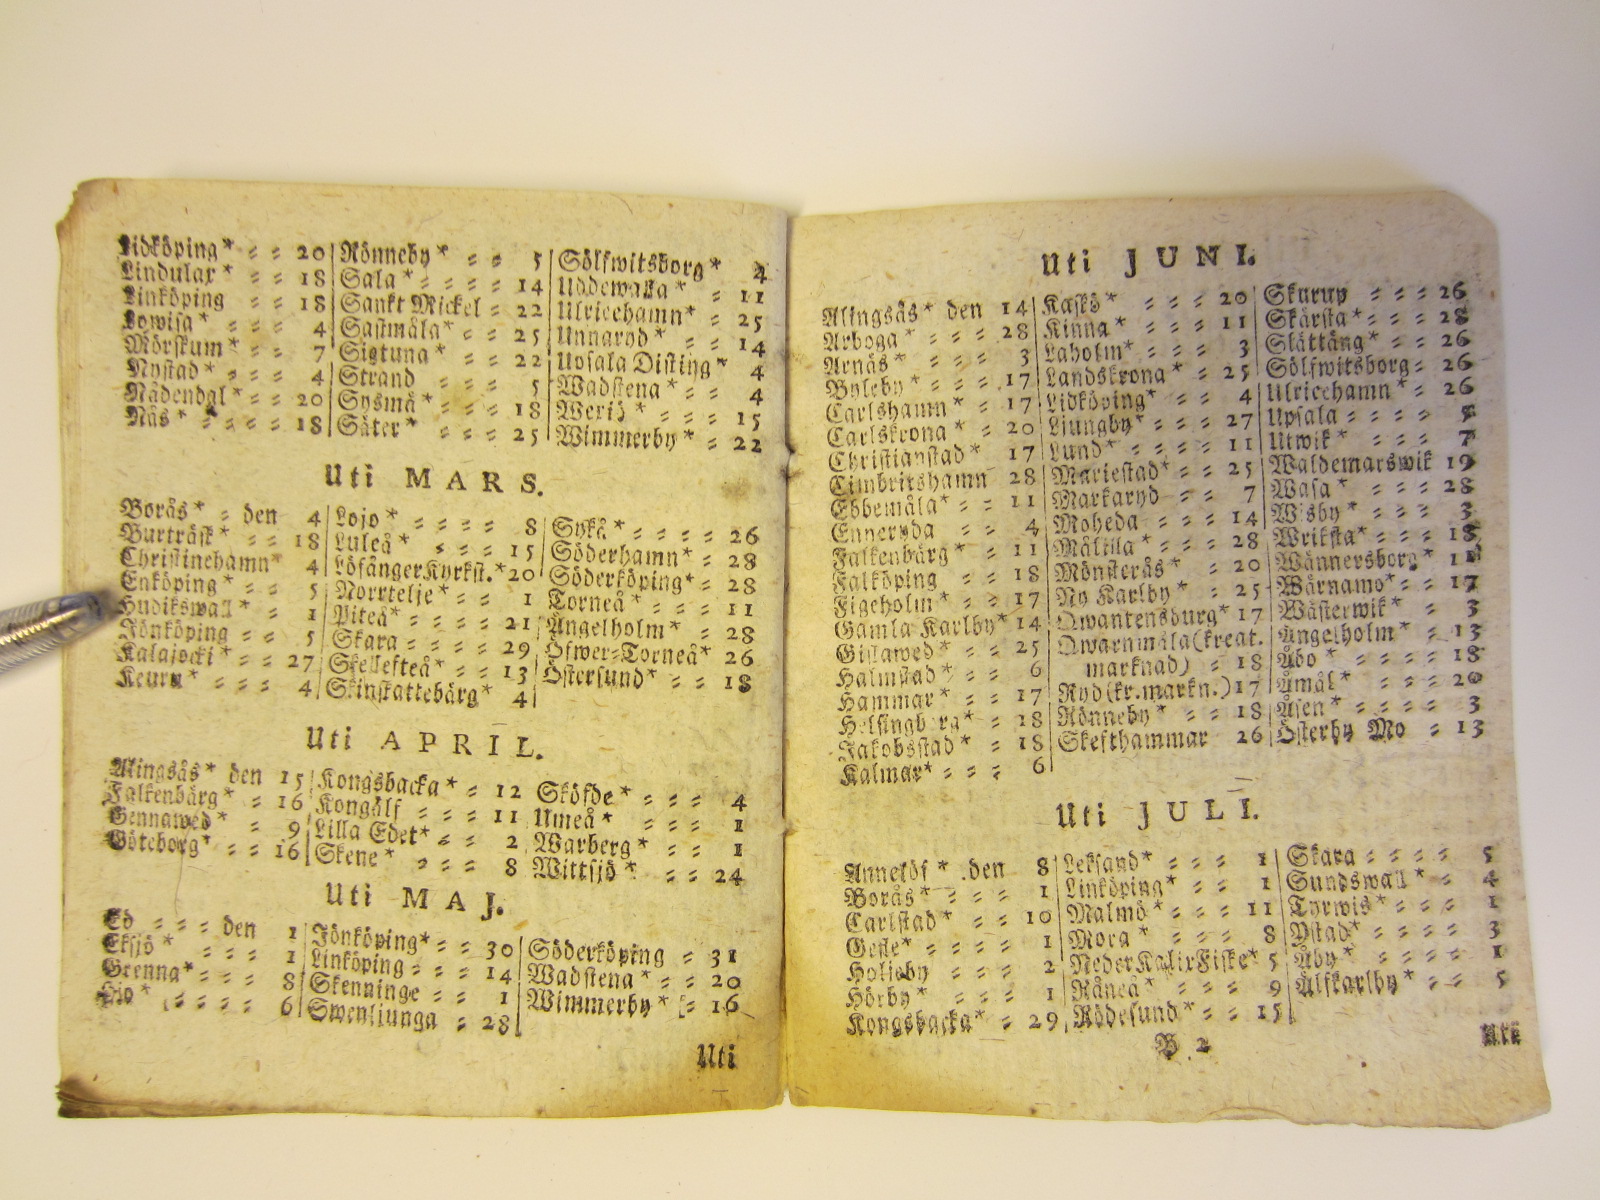 Lidköping* = = 20
Lindulax* = = 18
Linköping = = 18
Lowisa* = = = 4
Mörskum* = = 7
Nystad* = = = 4
Nådendal* = = 20
Näs* = = = = 18
Rönneby* = = 5
Sala* = = = = 14
Sankt Mickel = 22
Sastmåla* = = 25
Sigtuna* = = 22
Strand = = = 5
Sysmä* = = = 18
Säter* = = = 25
Sölfwitsborg* 4
Uddewalla* = 11
Ulricehamn* = 25
Unnaryd* = = 14
Upsala Disting* 4
Wadstena* = = 4
Werjö* = = = 15
Wimmerby* = 22
Uti MARS.
Borås* = den 4
Burträsk* = = 18
Christinehamn* 4
Enköping* = = 5
Hudikswall* = 1
Jönköping = = 5
Kalajocki* = = 27
Keuru* = = = 4
Lojo* = = = = 8
Luleå* = = = 15
Löfånger Kyrkst.* 20
Norrtelje* = = 1
Piteå* = = = = 21
Skara = = = = 29
Skellefteå* = = 13
Skinskattebärg* 4
Sykå* = = = = 26
Söderhamn* = 28
Söderköping* = 28
Torneå* = = = 11
Ängelholm* = 28
Öfwer=Torneå* 26
Östersund* = = 18
Uti APRIL.
Alingsås* den 15
Falkenbärg* = 16
Gennawed* = 9
Göteborg* = = 16
Kongsbacka* = 12
Kongälf = = = 11
Lilla Edet* = = 2
Skene* = = = 8
Sköfde* = = = 4
Umeå* = = = 1
Warberg* = = 1
Wittsjö* = = 24
Uti MAJ.
Ed = = = den 1
Eksjö* = = = 1
Grenna* = = = 8
Hjo* = = = = 6
Jönköping* = = 30
Linköping = = = 14
Skenninge = = 1
Swenljunga = 28
Söderköping = 31
Wadstena* = = 20
Wimmerby* = 16
Uti
Uti JUNI.
Alingsås* den 14
Arboga* = = = 28
Arnäs* = = = 3
Byleby* = = = 17
Carlshamn* = 17
Carlskrona* = 20
Christianstad* 17
Cimbritshamn 28
Ebbemåla* = = 11
Enneryda = = 4
Falkenbärg* = 11
Falköping = = 18
Figeholm* = = 17
Gamla Karlby* 14
Gislawed* = = 25
Halmstad* = = 6
Hammar* = = 17
Helsingborg* = 18
Jakobsstad* = 18
Kalmar* = = = 6
Kaskö* = = = 20
Kinna* = = = 11
Laholm* = = = 3
Landskrona* = 25
Lidköping* = = 4
Ljungby* = = = 27
Lund* = = = = 11
Mariestad* = = 25
Markaryd = = 7
Moheda = = = 14
Målilla* = = = 28
Mönsterås* = = 20
Ny Karlby* = = 25
Qwantensburg* 17
Qwarnmåla (kreat.
marknad) = = 18
Ryd (kr.markn.) 17
Rönneby* = = 18
Skefthammar 26
Skurup = = = 26
Skärsta* = = = 28
Slättäng* = = 26
Sölfwitsborg = 26
Ulricehamn* = 26
Upsala = = = =
Utwik* = = = 7
Waldemarswik 19
Wasa* = = = 28
Wisby* = = = 3
Wriksta* = = 18
Wännersborg* 11
Wärnamo* = = 17
Wästerwik* = 3
Ängelholm* = 13
Åbo* = = = = 18
Åmål* = = = 20
Åsen* = = = = 3
Österby Mo = 13
Uti JULI.
Annelöf* den 8
Borås* = = = 1
Carlstad* = = 10
Gefle* = = = = 1
Holjeby = = = 2
Hörby* = = = 1
Kongsbacka* = 29
Leksand* = = = 1
Linköping* = = 1
Malmö* = = = 11
Mora* = = = 8
Neder Kalix Fiske* 5
Råneå* = = = 9
Rödesund* = = 15
Skara = = = = 5
Sundswall* = 4
Tyrwis* = = = 1
Ystad* = = = = 3
Åby* = = = = 1
Älfkarlby* = = = 5
B 2
Uti